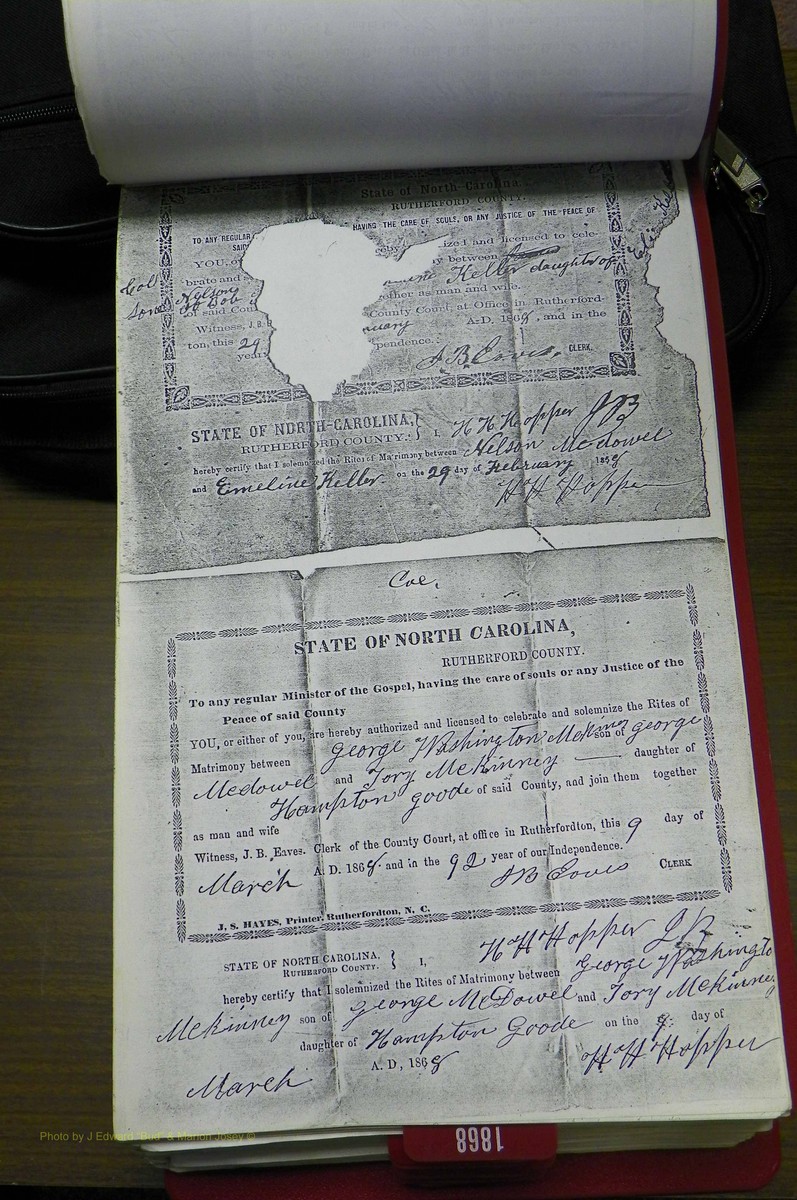 State of North-Carolina.
RUTHERFORD COUNTY.
TO ANY REGULAR HAVING THE CARE OF SOULS, OR ANY JUSTICE OF THE PEACE OF
SAID
YOU, or ize and licensed to cele-
brate and s y between
Col Nelson Keller daughter of
Son of Bob ether as man and wife.
of said Coun County Court, at Office in Rutherford-
Witness, J. B. nuary A. D. 1868, and in the
ton, this 29 pendence.
year J B Eaves, CLERK.
STATE OF NORTH-CAROLINA, } I, H H Hopper JP
RUTHERFORD COUNTY.
hereby certify that I solemnized the Rites of Matrimony between Nelson McDowel
and Emeline Keller on the 29 day of February 1868
H H Hopper
Col,
STATE OF NORTH CAROLINA,
RUTHERFORD COUNTY.
To any regular Minister of the Gospel, having the care of souls or any Justice of the
Peace of said County
YOU, or either of you, are hereby authorized and licensed to celebrate and solemnize the Rites of
Matrimony between George Washington McKinney son of George
McDowel and Tory McKinney daughter of
Hampton Goode of said County, and join them together
as man and wife
Witness, J. B. Eaves. Clerk of the County Court, at office in Rutherfordton, this 9 day of
March A. D. 1868 and in the 92 year of our Independence.
J B Eaves CLERK
J. S. HAYES, Printer, Rutherfordton, N. C.
STATE OF NORTH CAROLINA, } I, H H Hopper JP
RUTHERFORD COUNTY.
hereby certify that I solemnized the Rites of Matrimony between George Washington
McKinney son of George McDowel and Tory McKinney
daughter of Hampton Goode on the 9 day of
March A. D, 1868 H H Hopper
1868
Photo by J Edward "Bud" & Marion Josey ©